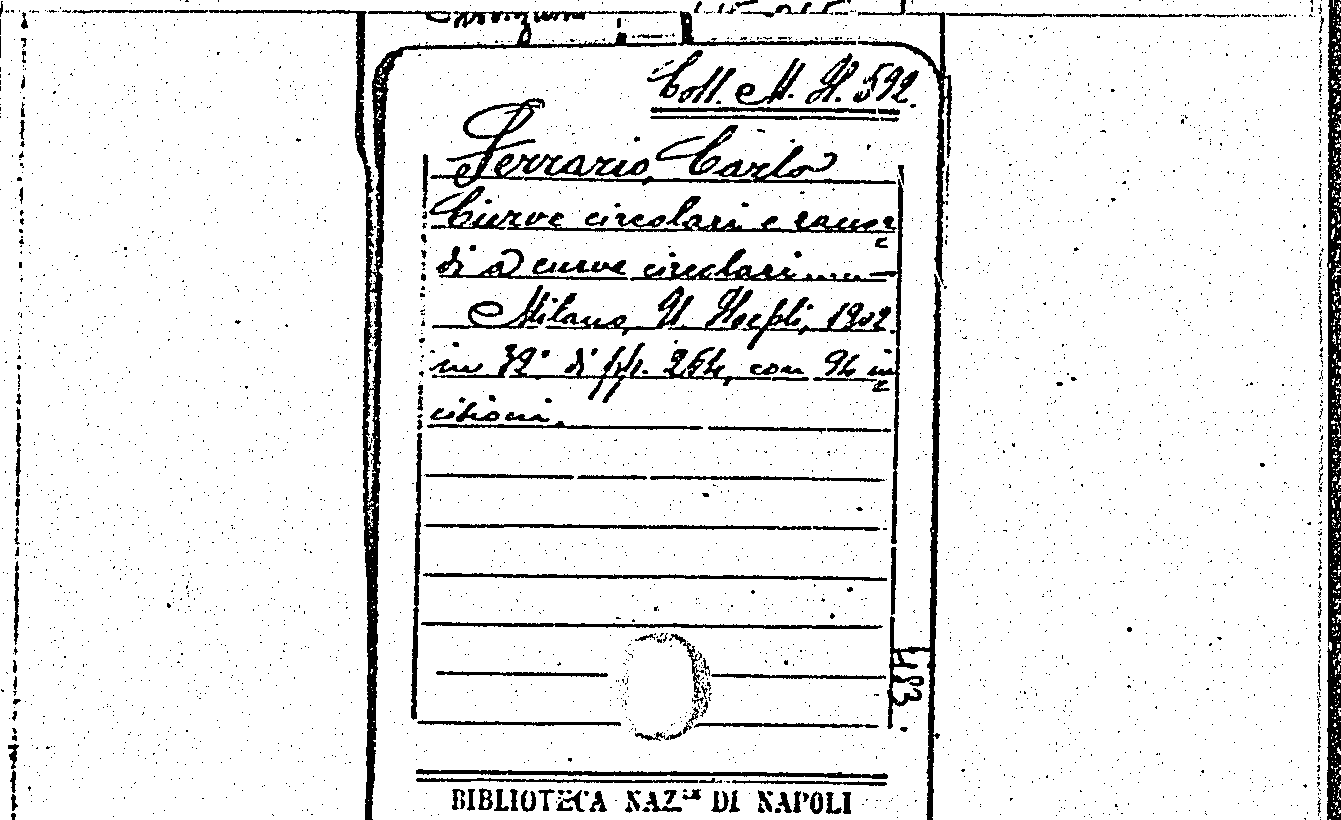 Coll. M. H. 592.
Ferrario, Carlo
Curve circolari e raccor
di a curve circolari......—
Milano, U. Hoepli, 1902.
in 32° di pp. 264, con 94 in
cisioni.
483
BIBLIOTECA NAZ.LE DI NAPOLI